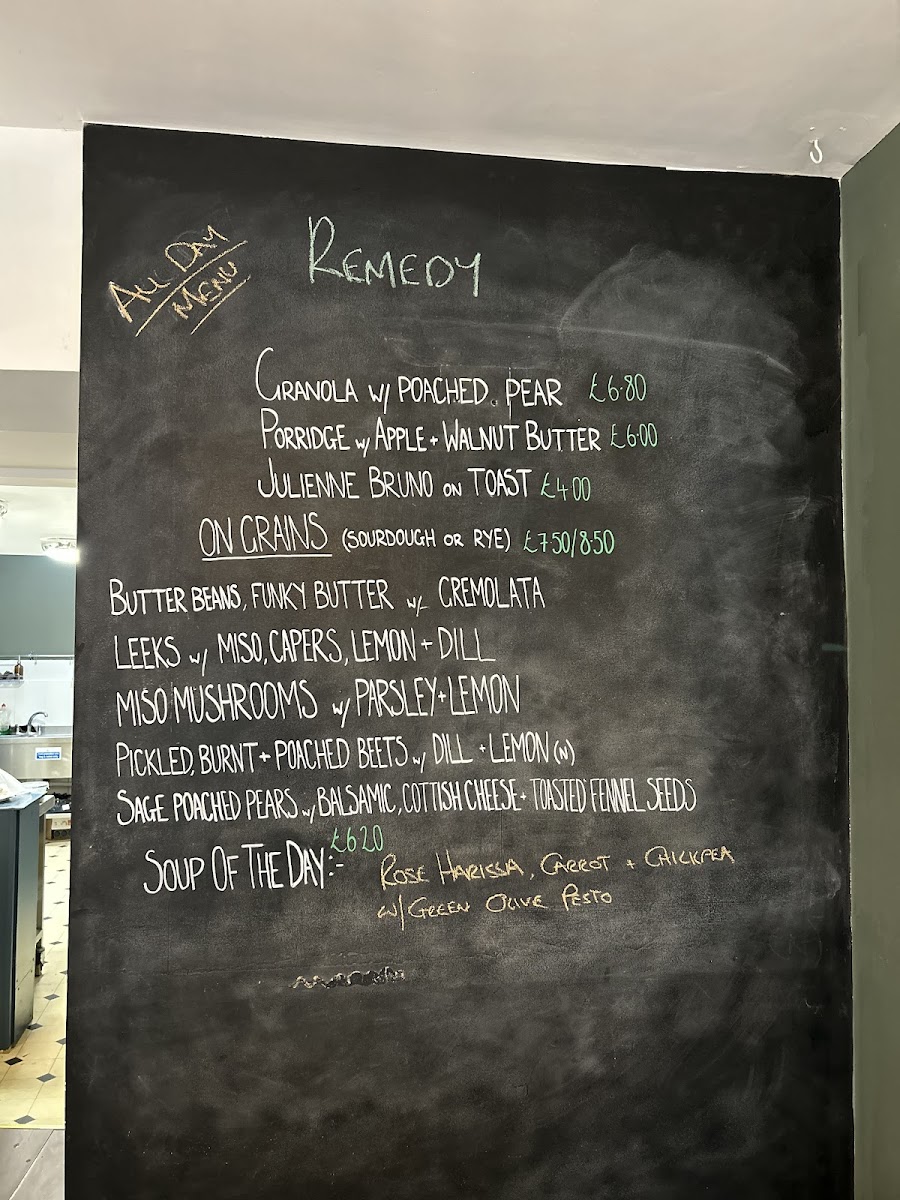 ALL DAY
MENU
REMEDY
GRANOLA W/ POACHED PEAR £6.80
PORRIDGE W/ APPLE + WALNUT BUTTER £6.00
JULIENNE BRUNO ON TOAST £4.00
ON GRAINS (SOURDOUGH OR RYE) £7.50/8.50
BUTTER BEANS, FUNKY BUTTER W/ GREMOLATA
LEEKS W/ MISO, CAPERS, LEMON + DILL
MISO MUSHROOMS W/ PARSLEY + LEMON
PICKLED, BURNT + POACHED BEETS W/ DILL + LEMON (N)
SAGE POACHED PEARS W/ BALSAMIC, COTTISH CHEESE + TOASTED FENNEL SEEDS
£6.20
SOUP OF THE DAY:- ROSE HARISSA, CARROT + CHICKPEA
W/ GREEN OLIVE PESTO